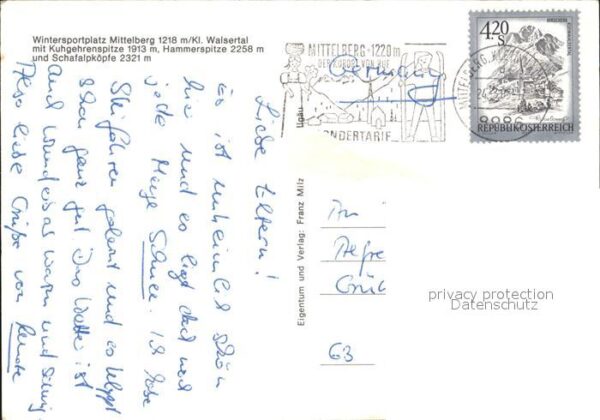 Wintersportplatz Mittelberg 1218 m/Kl. Walsertal
mit Kuhgehrenspitze 1913 m, Hammerspitze 2258 m
und Schafalpköpfe 2321 m
MITTELBERG · 1220 m
DER KURORT VON RUF
SONDERTARIF
4.20
S
REPUBLIK ÖSTERREICH
Germany
Liebe Eltern!
Es ist unheimlich schön
hier und es liegt auch noch
jede Menge Schnee. Ich habe
Skifahren gelernt und es klappt
schon ganz gut. Das Wetter ist
auch wunderbar warm und sonnig.
Alles liebe Grüße von
Renate
Eigentum und Verlag: Franz Milz
An
63
privacy protection
Datenschutz